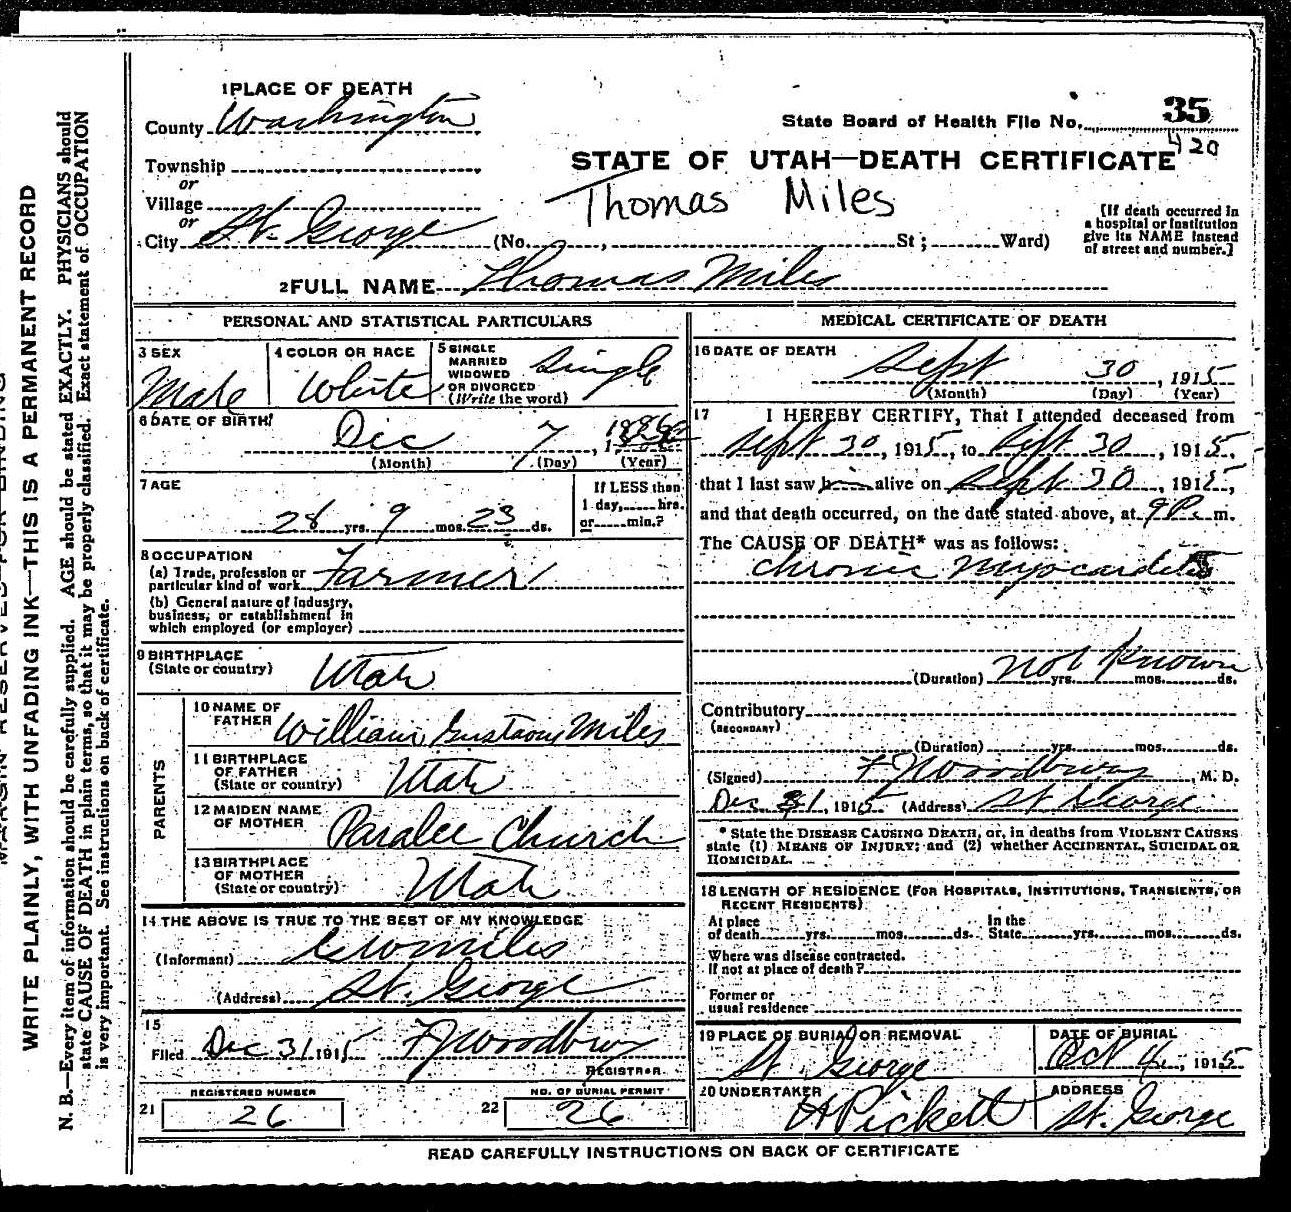 1 PLACE OF DEATH
County Washington
State Board of Health File No. 35
420
Township
or
Village
or
City St. George (No. , St ; Ward)
STATE OF UTAH—DEATH CERTIFICATE
Thomas Miles
[If death occurred in
a hospital or institution
give its NAME instead
of street and number.]
2 FULL NAME Thomas Miles
PERSONAL AND STATISTICAL PARTICULARS
3 SEX
Male
4 COLOR OR RACE
White
5 SINGLE
MARRIED
WIDOWED
OR DIVORCED
(Write the word)
Single
6 DATE OF BIRTH
Dec 7, 1886
(Month) (Day) (Year)
7 AGE
28 yrs. 9 mos. 23 ds.
If LESS than
1 day, hrs.
or min.?
8 OCCUPATION
(a) Trade, profession or
particular kind of work Farmer
(b) General nature of industry,
business, or establishment in
which employed (or employer)
9 BIRTHPLACE
(State or country) Utah
PARENTS
10 NAME OF
FATHER William Gustavus Miles
11 BIRTHPLACE
OF FATHER
(State or country) Utah
12 MAIDEN NAME
OF MOTHER Paralee Church
13 BIRTHPLACE
OF MOTHER
(State or country) Utah
14 THE ABOVE IS TRUE TO THE BEST OF MY KNOWLEDGE
(Informant) Miles
(Address) St. George
15
Filed Dec 31 1915 F J Woodbury
REGISTRAR
21 REGISTERED NUMBER
26
22 NO. OF BURIAL PERMIT
26
MEDICAL CERTIFICATE OF DEATH
16 DATE OF DEATH
Sept 30, 1915
(Month) (Day) (Year)
17 I HEREBY CERTIFY, That I attended deceased from
Sept 30, 1915, to Sept 30, 1915,
that I last saw h alive on Sept 30, 1915,
and that death occurred, on the date stated above, at 9 P. m.
The CAUSE OF DEATH* was as follows:
Chronic Myocarditis
(Duration) not Known yrs. mos. ds.
Contributory
(SECONDARY)
(Duration) yrs. mos. ds.
(Signed) F J Woodbury, M. D.
Dec 31, 1915 (Address) St. George
* State the DISEASE CAUSING DEATH, or, in deaths from VIOLENT CAUSES
state (1) MEANS OF INJURY; and (2) whether ACCIDENTAL, SUICIDAL OR
HOMICIDAL.
18 LENGTH OF RESIDENCE (FOR HOSPITALS, INSTITUTIONS, TRANSIENTS, OR
RECENT RESIDENTS)
At place
of death yrs. mos. ds.
In the
State yrs. mos. ds.
Where was disease contracted.
If not at place of death?
Former or
usual residence
19 PLACE OF BURIAL OR REMOVAL
St. George
DATE OF BURIAL
Oct 4, 1915
20 UNDERTAKER
H Pickett
ADDRESS
St. George
READ CAREFULLY INSTRUCTIONS ON BACK OF CERTIFICATE
WRITE PLAINLY, WITH UNFADING INK—THIS IS A PERMANENT RECORD
N. B.—Every item of information should be carefully supplied. AGE should be stated EXACTLY. PHYSICIANS should
state CAUSE OF DEATH in plain terms, so that it may be properly classified. Exact statement of OCCUPATION
is very important. See instructions on back of certificate.